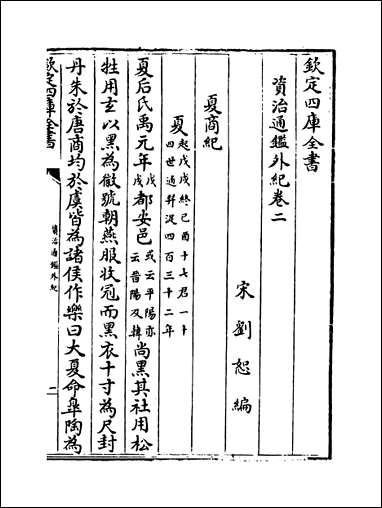 欽定四庫全書
資治通鑑外紀卷二
宋劉恕編
夏商紀
夏起戊戌終己酉十七君一十
四世通羿浞四百三十二年
夏后氏禹元年戊戌都安邑或云平陽亦云晉陽及韓尚黑其社用松
牲用玄以黑為徽號朝燕服收冠而黑衣十寸為尺封
丹朱於唐商均於虞皆為諸侯作樂曰大夏命臯陶為
欽定四庫全書
資治通鑑外紀